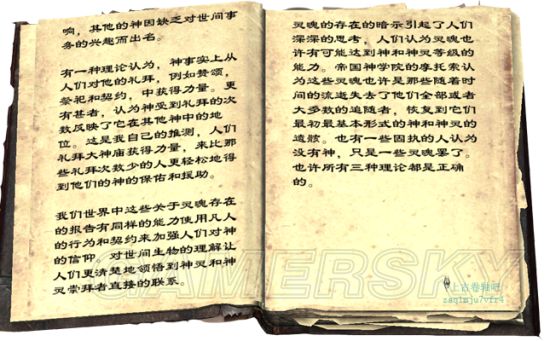 响，其他的神因缺乏对世间事
务的兴趣而出名。
有一种理论认为，神事实上从
人们对他的礼拜，例如赞颂，
祭祀和契约，中获得力量。更
有甚者，认为神受到礼拜的次
数反映了它在其他神中的地
位。这是我自己的推测，人们
礼拜大神庙获得力量，来比那
些礼拜次数少的人更轻松地得
到他们的神的保佑和援助。
我们世界中这些关于灵魂存在
的报告有同样的能力使用凡人
的行为和契约来加强人们对神
的信仰。对世间生物的理解让
人们更清楚地领悟到神灵和神
灵崇拜者直接的联系。
灵魂的存在的暗示引起了人们
深深的思考，人们认为灵魂也
许有可能达到神和神灵等级的
能力。帝国神学院的摩托索认
为这些灵魂也许是那些随着时
间的流逝失去了他们全部或者
大多数的追随者，恢复到它们
最初最基本形式的神和神灵的
遗骸。也有一些固执的人认为
没有神，只是一些灵魂罢了。
也许所有三种理论都是正确
的。
GAMERSKY
上古卷轴吧
zaq1mju7vfr4